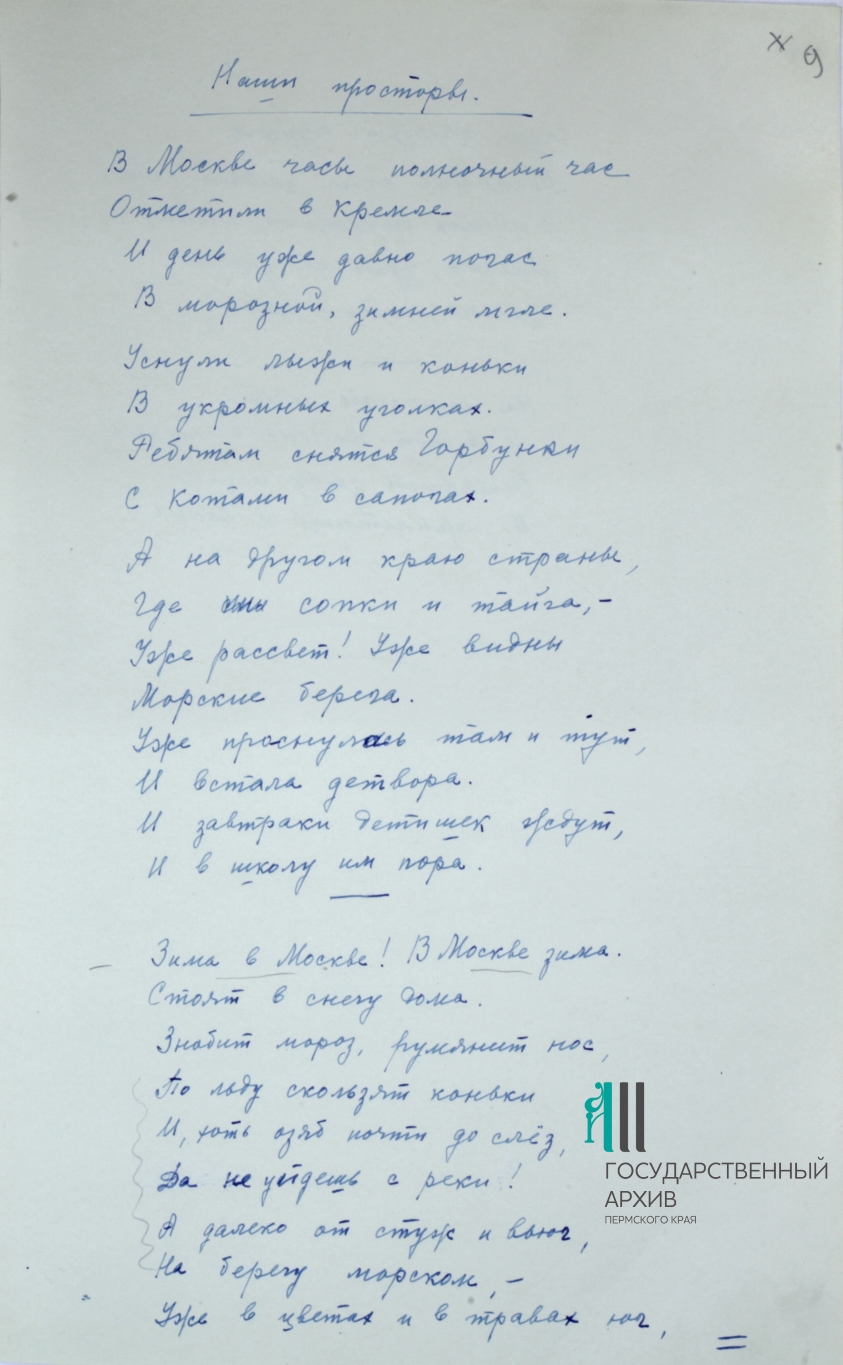 9
Наши просторы.
В Москве часы полночный час
Отметили в Кремле
И день уже давно погас
В морозной, зимней мгле.
Уснули лыжи и коньки
В укромных уголках.
Ребятам снятся Горбунки
С Котами в сапогах.
А на другом краю страны,
Где сопки и тайга,–
Уже рассвет! Уже видны
Морские берега.
Уже проснулась там и тут,
И встала детвора.
И завтраки детишек ждут,
И в школу им пора.
Зима в Москве! В Москве зима.
Стоят в снегу дома.
Знобит мороз, румянит нос,
По льду скользят коньки
И, хоть озяб почти до слёз,
Да не уйдешь с реки!
А далеко от стуж и вьюг,
На берегу морском,–
Уже в цветах и в травах юг,
ГОСУДАРСТВЕННЫЙ
АРХИВ
ПЕРМСКОГО КРАЯ